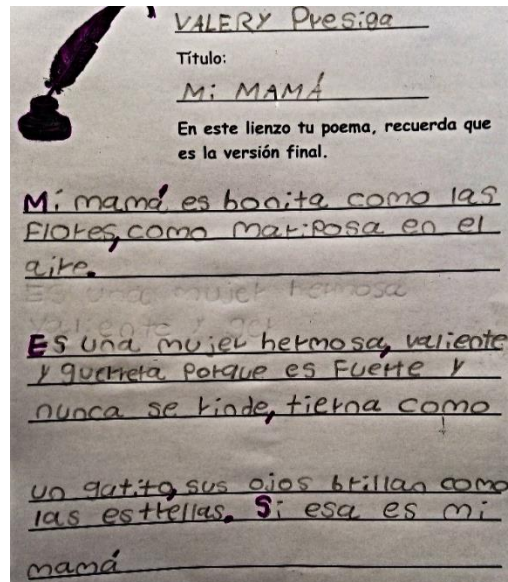 VALERY Presiga
Título:
Mi MAMÁ
En este lienzo tu poema, recuerda que
es la versión final.
Mi mamá es bonita como las
Flores, como mariposa en el
aire.
Es una mujer hermosa
valiente y
Es una mujer hermosa, valiente
y guerrera porque es Fuerte y
nunca se rinde, tierna como
un gatito, sus ojos brillan como
las estrellas. Si esa es mi
mamá